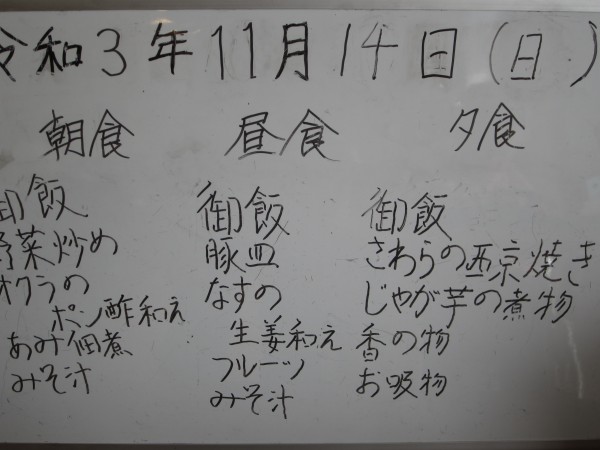 令和3年11月14日(日)
朝食
御飯
野菜炒め
オクラの
ポン酢和え
あみ佃煮
みそ汁
昼食
御飯
豚皿
なすの
生姜和え
フルーツ
みそ汁
夕食
御飯
さわらの西京焼き
じゃが芋の煮物
香の物
お吸物